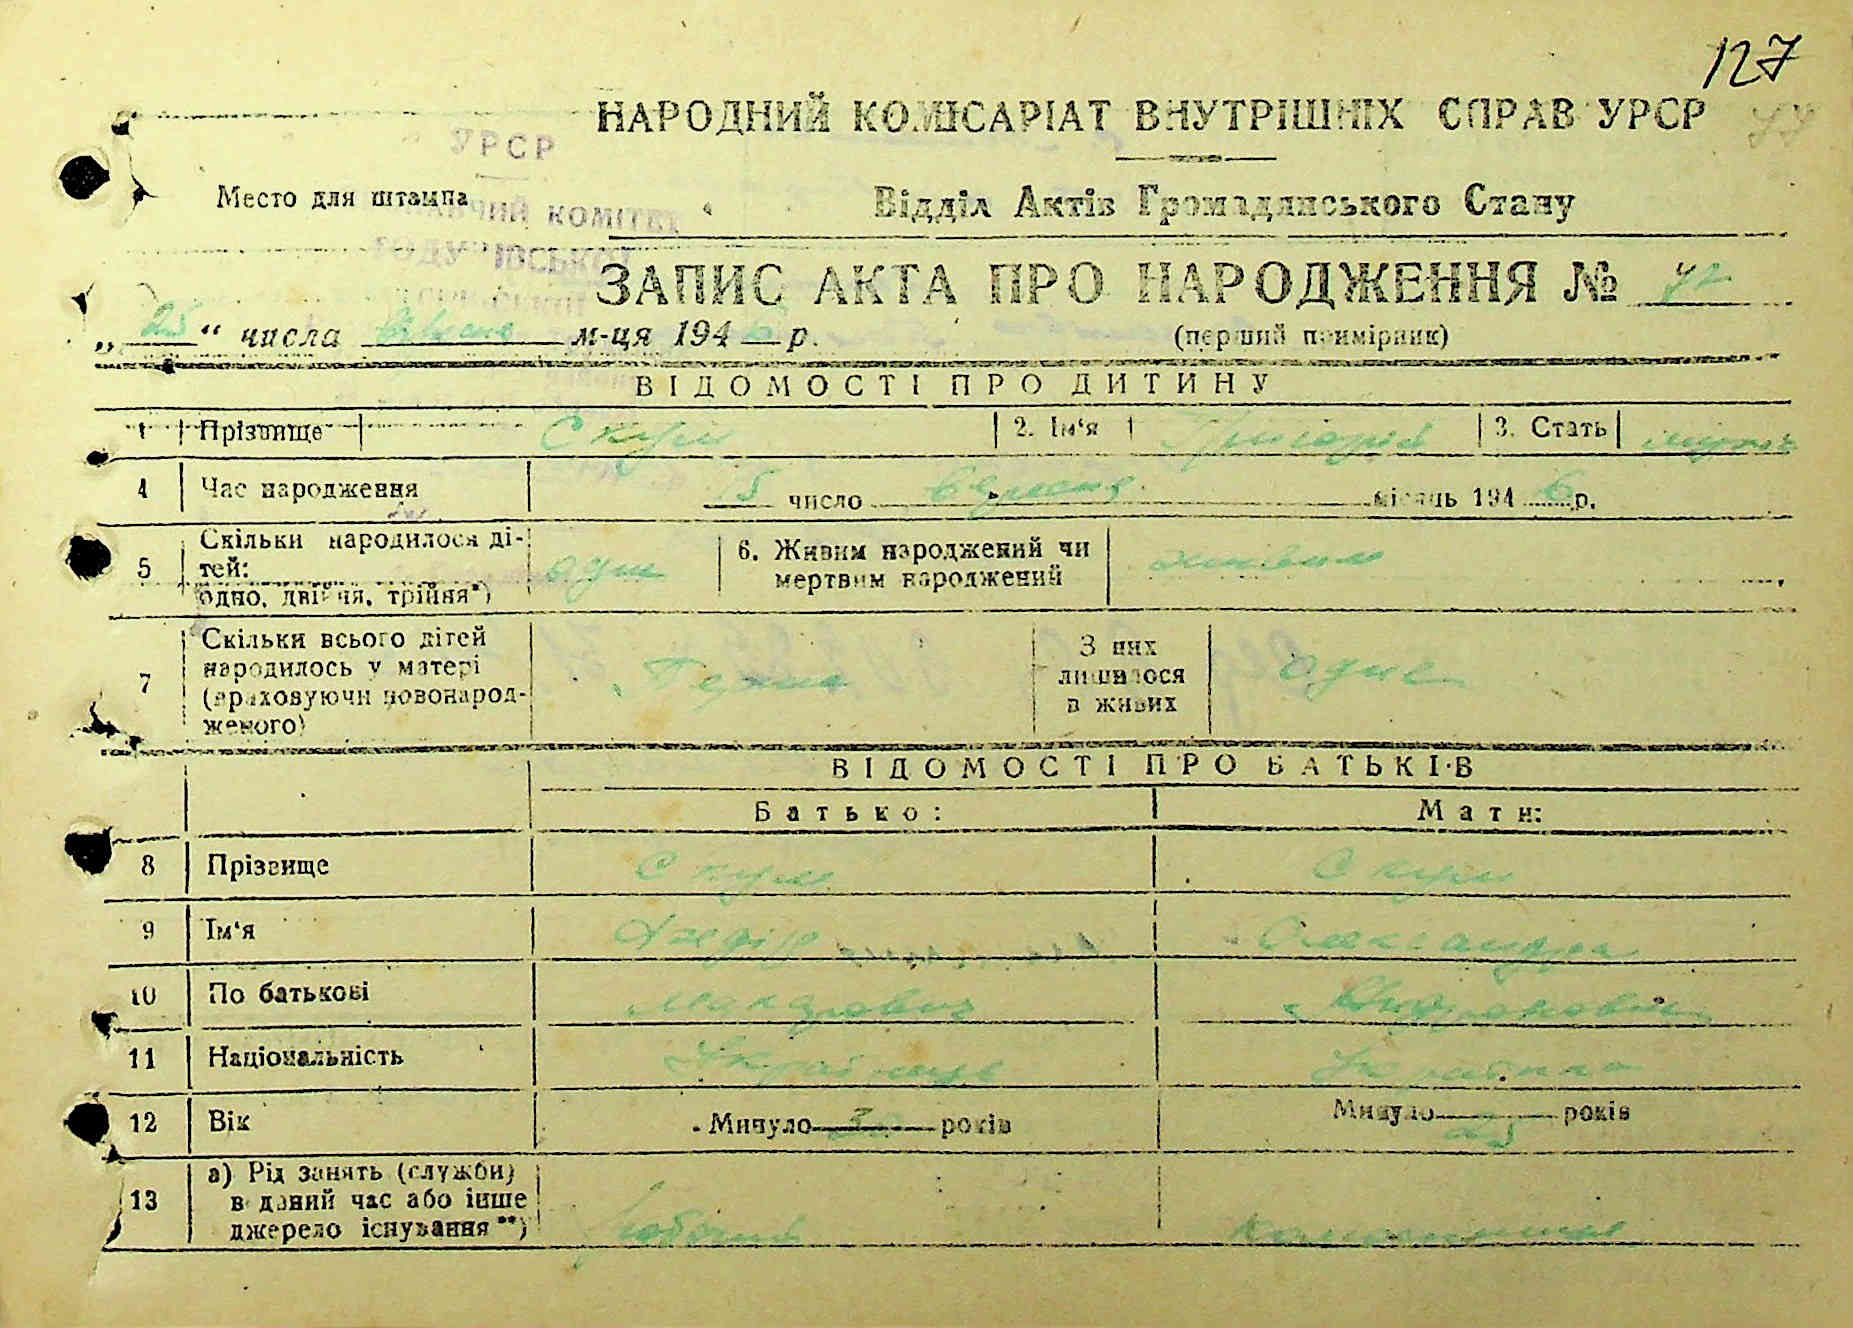 127
НАРОДНИЙ КОМІСАРІАТ ВНУТРІШНІХ СПРАВ УРСР
77
УРСР
Место для штампа
КОМІТЕТ
Відділ Актів Громадянського Стану
ЗАПИС АКТА ПРО НАРОДЖЕННЯ №
„25“ числа м-ця 1946 р.
(перший примірник)
ВІДОМОСТІ ПРО ДИТИНУ
1 Прізвище Скум 2. Ім‘я Григорій 3. Стать
4 Час народження 5 число вересня місяць 1946 р.
5 Скільки народилося ді-
тей:
одно, двійня, трійня*)
6. Живим народжений чи
мертвим народжений
живим
7 Скільки всього дітей
народилось у матері
(враховуючи новонарод-
женого)
Перше
З них
лишилося
в живих
одне
ВІДОМОСТІ ПРО БАТЬКІВ
Батько: Мати:
8 Прізвище Скум Скум
9 Ім‘я Олександра
10 По батькові Макарович
11 Національність Українець Українка
12 Вік Минуло 30 років Минуло 25 років
13 а) Рід занять (служби)
в даний час або інше
джерело існування**)
робочий колгоспниця